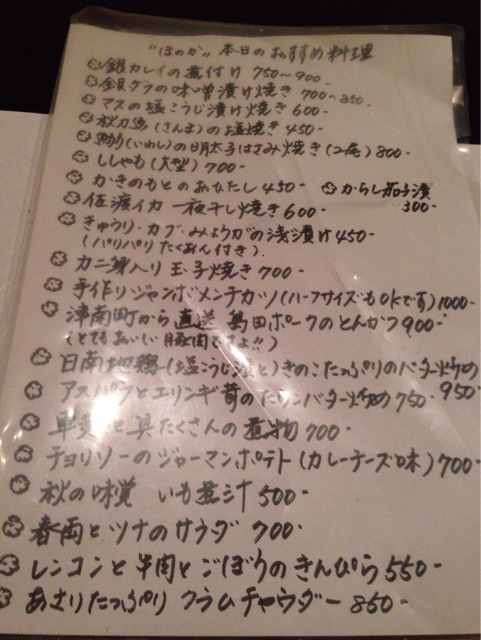 "ほのか" 本日のおすすめ料理
銀カレイの煮付け 750〜900-
銀ダラの味噌漬け焼き 700〜850-
マスの塩こうじ漬け焼き 600-
秋刀魚(さんま)の塩焼き 450-
(いわし)の明太子はさみ焼き(2尾) 800-
ししゃも(大型) 700-
かきのもとのおひたし 450- からし茄子漬 300-
佐渡イカ 一夜干し焼き 600-
きゅうり・カブ・みょうがの浅漬け 450-
(パリパリたくあん付き)
カニ身入り玉子焼き 700-
手作りジャンボメンチカツ(ハーフサイズもOKです) 1000-
津南町から直送 島田ポークのとんかつ 900-
(とてもおいしい豚肉ですよ!!)
日南地鶏(塩こうじ漬)ときのこたっぷりのバター炒め 950-
アスパラとエリンギ茸のバター炒め 750-
と具だくさんの煮物 700-
チョリソーのジャーマンポテト(カレーチーズ味) 700-
秋の味覚 いも煮汁 500-
春雨とツナのサラダ 700-
レンコンと牛肉とごぼうのきんぴら 550-
あさりたっぷり クラムチャウダー 850-